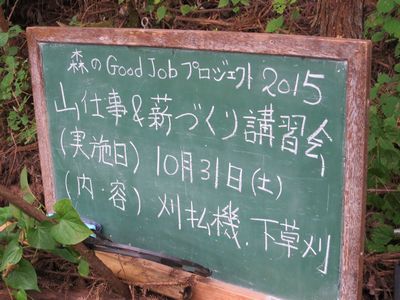 森のGood Jobプロジェクト2015
山仕事&薪づくり講習会
(実施日) 10月31日(土)
(内・容) 刈払機、下草刈